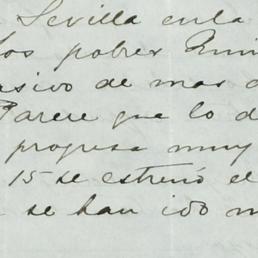 Sevilla en la
los pobres
sivo de mas
Parece que lo d
progresa muy
15 se estrenó el
se han ido m